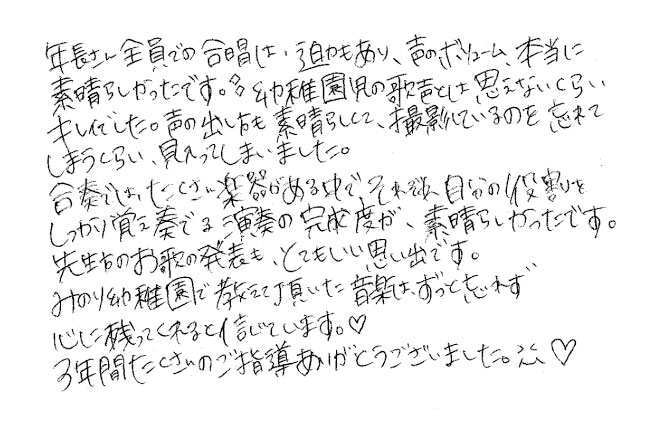 年長さん全員での合唱は、迫力もあり、声のボリューム、本当に
素晴らしかったです。幼稚園児の歌声とは思えないくらい
キレイでした。声の出し方も素晴らしくて、撮影しているのを忘れて
しまうくらい、見入ってしまいました。
合奏では、たくさん楽器がある中で、それぞれ自分の役割を
しっかり覚え奏でる演奏の完成度が、素晴らしかったです。
先生方のお歌の発表も、とてもいい思い出です。
みのり幼稚園で教えて頂いた音楽は、ずっと忘れず
心に残ってくれると信じています。♡
3年間たくさんのご指導ありがとうございました。♡